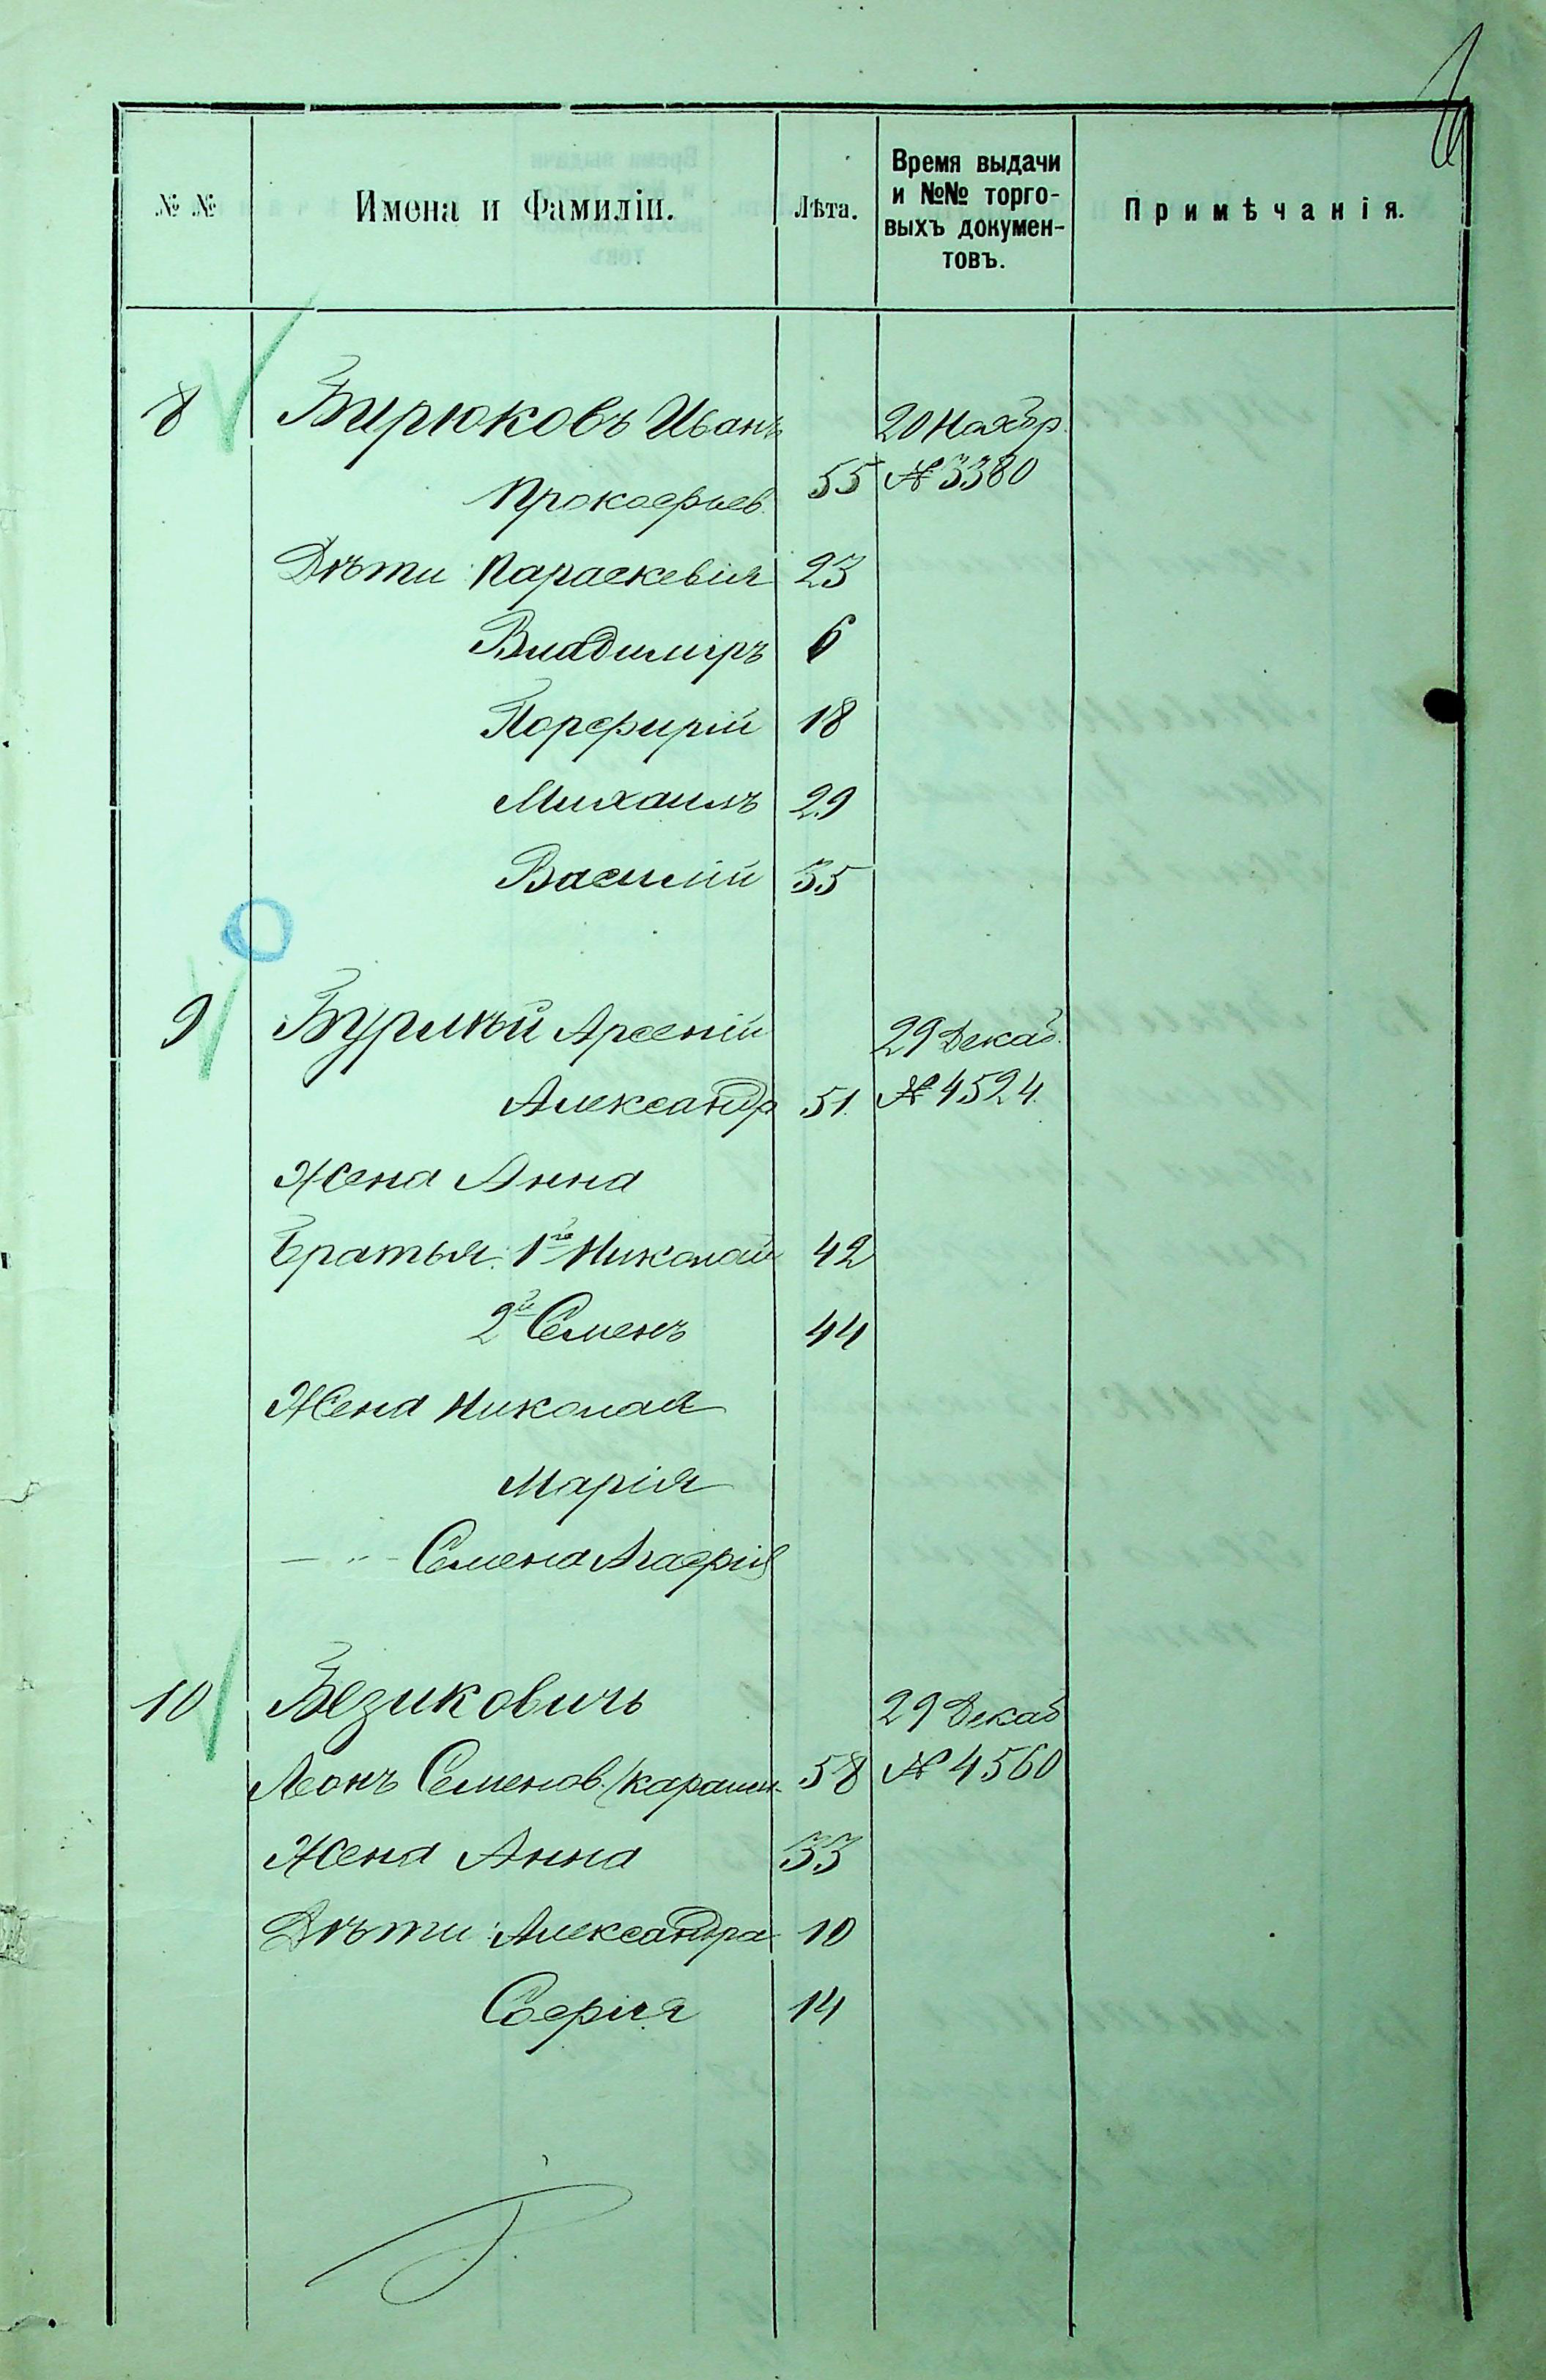 № №
Имена и Фамиліи.
Лѣта.
Время выдачи
и №№ торго-
выхъ докумен-
товъ.
Примѣчанія.
8 Бирюковъ Иванъ 20 Ноябр.
Прокофьев. 55 № 3380
Дѣти: Параскевія 23
Владиміръ 6
Порфирій 18
Михаилъ 29
Василій 35
9 Бурлѣй Арсеній 29 Декаб.
Александр 51. № 4524.
Жена Анна
Братья: 1й Николай 42
2й Семенъ 44
Жена Николая
Марія
— „ — Семена Агафія
10 Безиковичъ 29 Декаб
Леонъ Семенов. /караим. 58 № 4560
Жена Анна 33
Дѣти: Александра 10
Софія 14